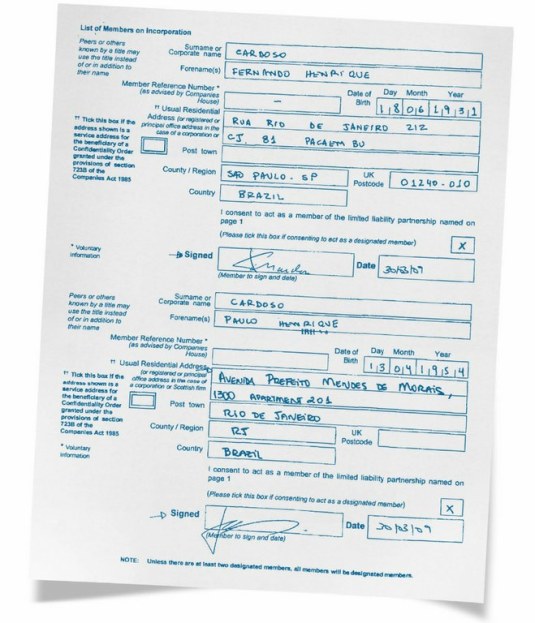 List of Members on Incorporation
Peers or others
known by a title may
use the title instead
of or in addition to
their name
Surname or
Corporate name
CARDOSO
Forename(s)
FERNANDO HENRIQUE
Member Reference Number *
(as advised by Companies
House)
-
Date of
Birth
Day Month Year
18 06 1931
†† Usual Residential
Address (or registered or
principal office address in the
case of a corporation or
RUA RIO DE JANEIRO 212
CJ. 81 PACAEMBU
†† Tick this box if the
address shown is a
service address for
the beneficiary of a
Confidentiality Order
granted under the
provisions of section
723B of the
Companies Act 1985
Post town
County / Region
SAO PAULO - SP
UK
Postcode
01240-010
Country
BRAZIL
I consent to act as a member of the limited liability partnership named on
page 1
(Please tick this box if consenting to act as a designated member)
X
* Voluntary
information
Signed
(Member to sign and date)
Date
30/03/07
Peers or others
known by a title may
use the title instead
of or in addition to
their name
Surname or
Corporate name
CARDOSO
Forename(s)
PAULO HENRIQUE
Member Reference Number *
(as advised by Companies
House)
Date of
Birth
Day Month Year
13 04 1954
†† Usual Residential Address
(or registered or principal
office address in the case of
a corporation or Scottish firm
AVENIDA PREFEITO MENDES DE MORAIS,
1300 APARTMENT 201
†† Tick this box if the
address shown is a
service address for
the beneficiary of a
Confidentiality Order
granted under the
provisions of section
723B of the
Companies Act 1985
Post town
RIO DE JANEIRO
County / Region
RJ
UK
Postcode
Country
BRAZIL
* Voluntary
information
I consent to act as a member of the limited liability partnership named on
page 1
(Please tick this box if consenting to act as a designated member)
X
Signed
(Member to sign and date)
Date
30/03/07
NOTE: Unless there are at least two designated members, all members will be designated members.